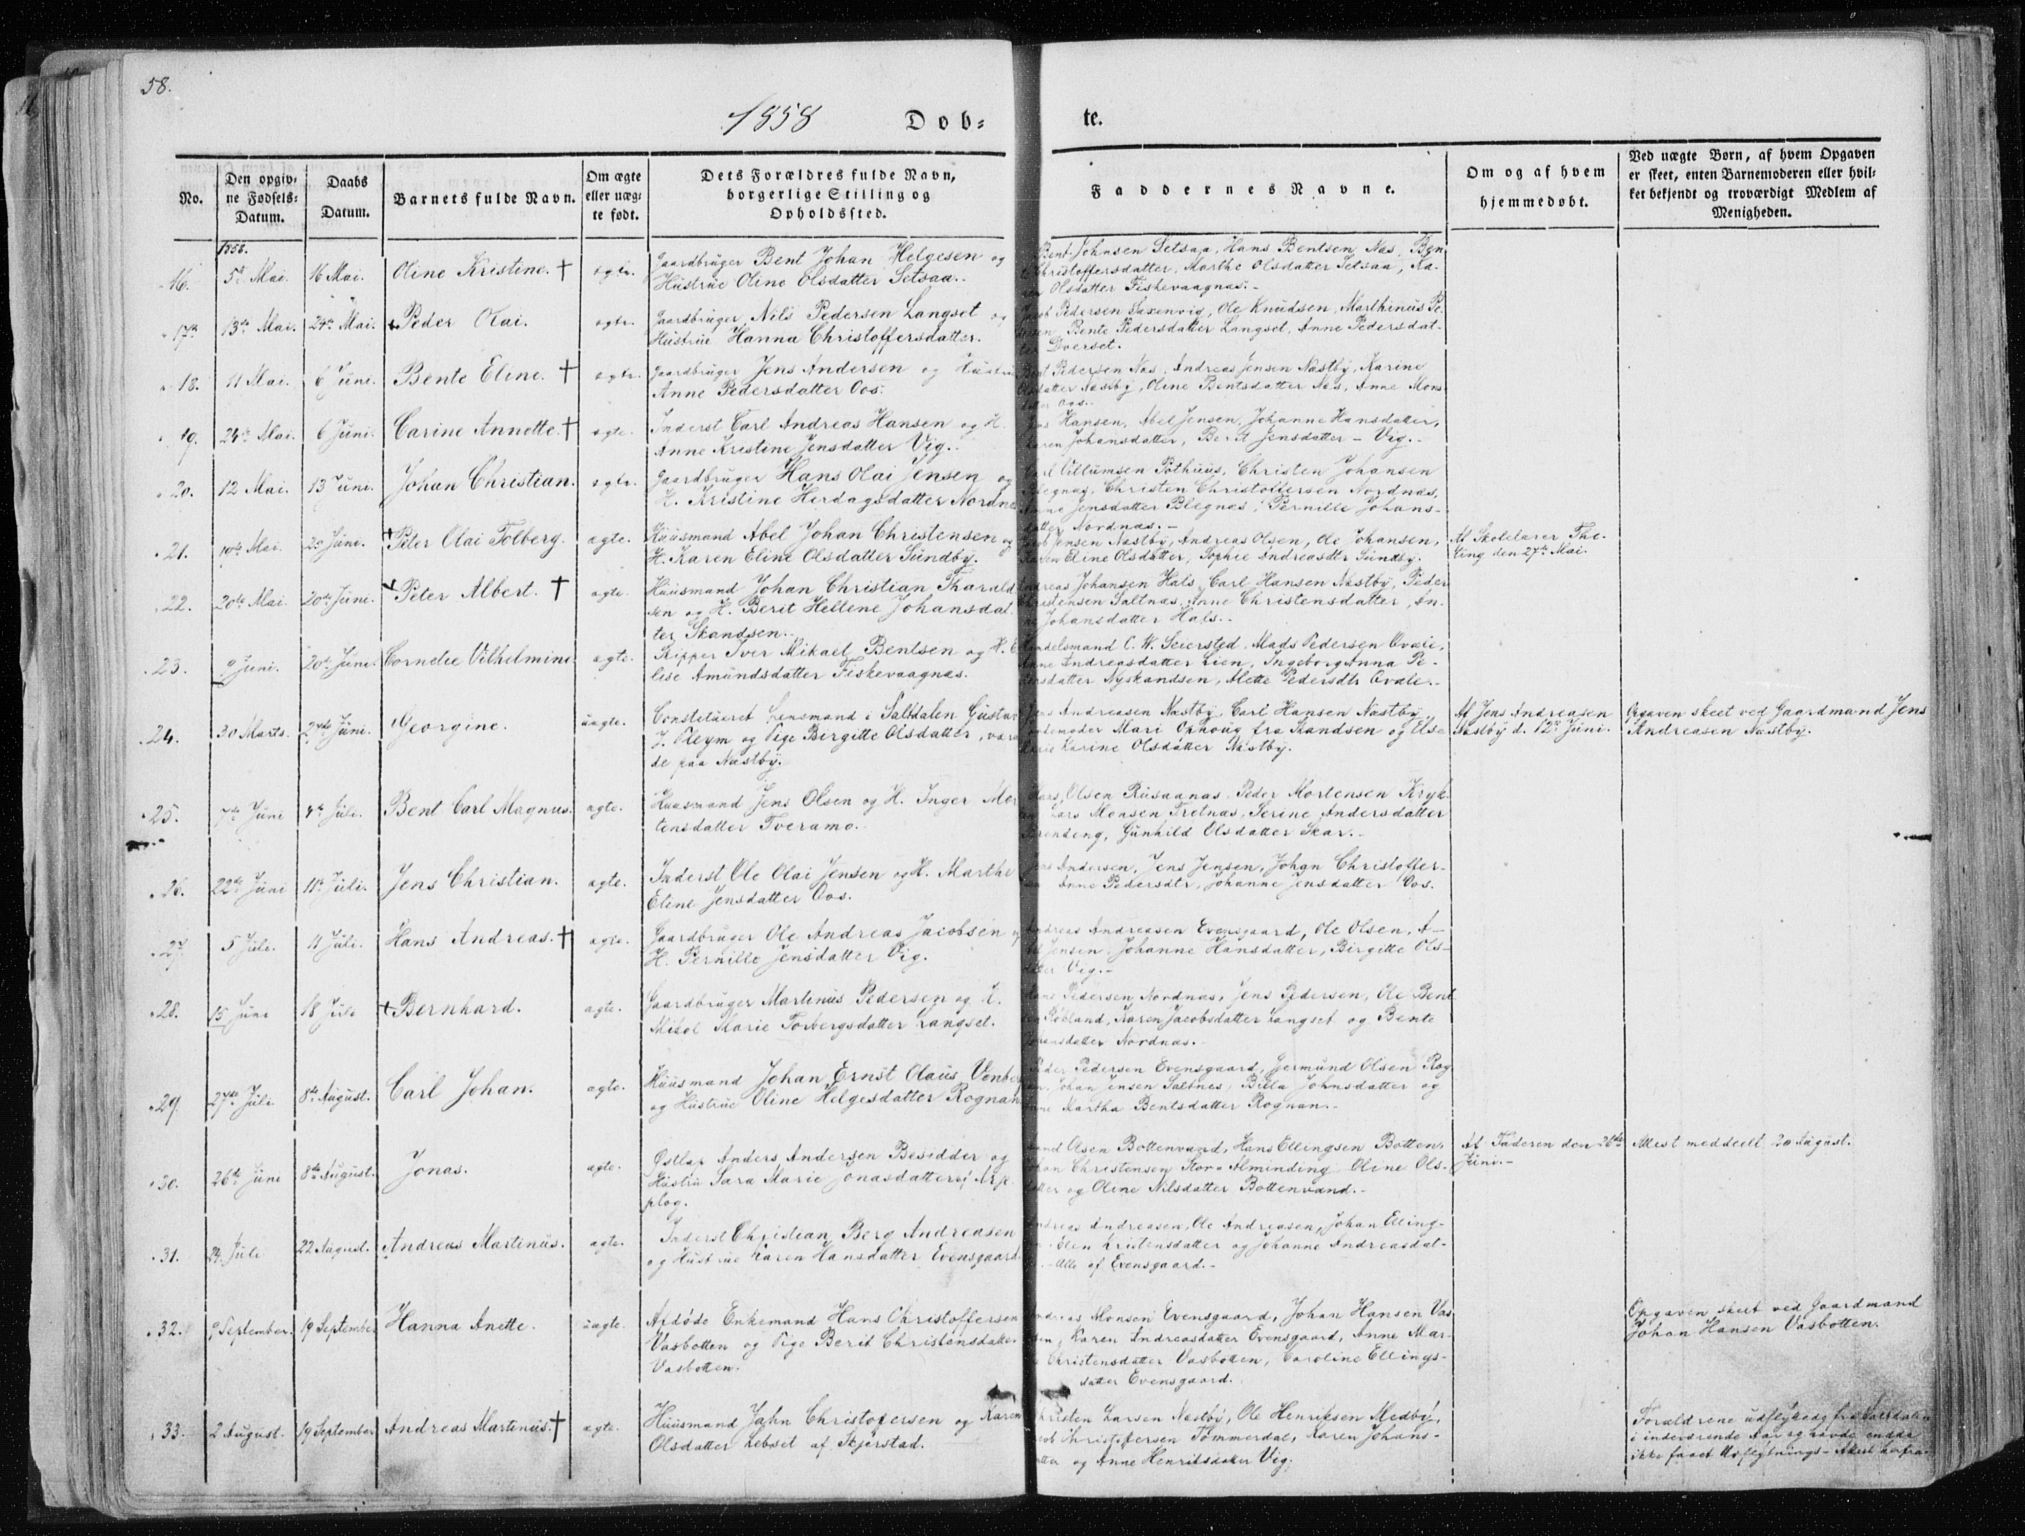 58.
1858 Døb-
te.
No.
Den opgiv-
ne Fødsels-
Datum.
Daabs
Datum.
Barnets fulde Navn.
Om ægte
eller uæg-
te født.
Dets Forældres fulde Navn,
borgerlige Stilling og
Opholdssted.
Faddernes Navne.
Om og af hvem
hjemmedøbt.
Ved uægte Børn, af hvem Opgaven
er skeet, enten Barnemoderen eller hvil-
ket bekjendt og troværdigt Medlem af
Menigheden.
1858.
16. 5te Mai. 16 Mai. Oline Kristine. † ægte. Gaardbruger Bent Johan Helgesen og
Hustrue Oline Olsdatter Setsaa.
Bent Johnsen Setsaa, Hans Bentsen Næs,
Christoffersdatter, Marthe Olsdatter Setsaa, Ka-
Olsdatter Fiskevaagnæs.
17. 13de Mai. 24de Mai. Peder Olai. ægte. Gaardbruger Nils Pedersen Langset og
Hustrue Hanna Christoffersdatter.
Pedersen Saxenvig, Ole Knudsen, Marthinus Pe-
Bente Pedersdatter Langset, Anne Pedersdat-
ter Dverset.
18. 11 Mai. 6 Juni. Bente Eline. † ægte. Gaardbruger Jens Andersen og Hustru
Anne Pedersdatter Oos.
Pedersen Næs, Andreas Jensen Næstby, Karine
Næstby, Oline Bentsdatter Næs, Anne Mons-
datter Oos.
19. 24de Mai. 6 Juni. Carine Annette. † ægte. Inderst Carl Andreas Hansen og H.
Anne Kristine Jensdatter Vig.
Hansen, Abel Jensen, Johanne Hansdatter,
Karen Johansdatter, Berit Jensdatter - Vig.
20. 12 Mai. 13 Juni. Johan Christian. ægte. Gaardbruger Hans Olai Jensen og
H. Kristine Herdagsdatter Nordnæs
Villumsen Pothuus, Christen Johansen
Christen Christoffersen Nordnæs,
Jensdatter Blegnæs, Pernille Johans-
datter Nordnæs.
21. 10de Mai. 20 Juni. Peter Olai Tolberg. ægte. Huusmand Abel Johan Christensen og
H. Karen Eline Olsdatter Sundby.
Jensen Næstby, Andreas Olsen, Ole Johansen,
Karen Eline Olsdatter, Sophie Andreasdtr Sundby.
Af Skolelærer The-
ting den 27de Mai.
22. 20de Mai. 20de Juni. Peter Albert. † ægte. Huusmand Johan Christian Harald-
sen og H. Berit Hellene Johansdat-
ter Skandsen.
Andreas Johansen Hals, Carl Hansen Næstby, Peder
Christensen Saltnæs, Anne Christensdatter, An-
Johansdatter Hals.
23. Juni. 20de Juni. Cornelie Vilhelmine ægte. Skipper Iver Mikael Bentsen og H. E-
lise Amundsdatter Fiskevaagnæs.
Handelsmand C. W. Seiersted, Mads Pedersen Qvæle,
Anne Andreasdatter Lien, Ingeborg Anna Pe-
dersdatter Nyskandsen, Mette Pedersdtr Qvæle.
24. 30 Marts. Juni. Georgine. uægte. Constitueret Lensmand i Saltdalen Gustav
J. Pleym og Pige Birgitte Olsdatter, være
de paa Næstby.
Jens Andreasen Næstby, Carl Hansen Næstby
Mari Ophoug fra Skandsen og Else
Karine Olsdatter Næstby.
Af Jens Andreasen
Næstby d. 12te Juni.
Opgaven skeet ved Gaardmand Jens
Andreasen Næstby.
25. 7de Juni 4de Juli. Bent Carl Magnus. ægte. Huusmand Jens Olsen og H. Inger Mor-
tensdatter Tveramo.
Hans Olsen Rusaanæs, Peder Mortensen Kryk-
Lars Monsen Tretnæs, Serine Andersdatter
Gunhild Olsdatter Skar.
26. 22de Juni 11te Juli. Jens Christian. ægte. Inderst Ole Olai Jensen og H. Marthe
Eline Jensdatter Oos.
Jens Andersen, Jens Jensen, Johan Christoffer-
sen Anne Pedersdtr, Johanne Jensdatter Oos.
27. 5 Juli. 11 Juli. Hans Andreas. † ægte. Gaardbruger Ole Andreas Jacobsen og
H. Pernille Jensdatter Vig.
Andreas Andreasen Evensgaard, Ole Olsen, A-
Jensen, Johanne Hansdatter, Birgitte Ols-
datter Vig.
28. 15 Juni 18 Juli Bernhard. ægte. Gaardbruger Martinus Pedersen og H.
Mikol Marie Torbergsdatter Langset.
Pedersen Nordnæs, Jens Pedersen, Ole Bent-
Røkland, Karen Jacobsdatter Langset og Bente
Nordnæs.
29. 27de Juli 8de August. Carl Johan. ægte. Huusmand Johan Ernst Olaus Venber
og Hustrue Oline Helgesdatter Rognan
Peder Pedersen Evensgaard, Germund Olsen Rog-
Johan Jensen Saltnes, Billa Johnsdatter og
Anne Martha Bentsdatter Rognan.
30. 26de Juni 8de August. Jonas. ægte. Østlap Anders Andersen Besidder og
Hustru Sara Marie Jonasdatter i Arje-
plog.
Olsen Bottenvand, Hans Ellingsen Botten,
Johan Christensen Store Alminding, Oline Ols-
datter og Oline Nilsdatter Bottenvand.
Af Faderen den 26de
Juni.
Attest meddeelt 20 August.
31. 24. Juli 22 August. Andreas Martinus. ægte. Inderst Christian Berg Andreasen
og Hustrue Karen Hansdatter Evensgaard
Andreas Andreasen, Ole Andreasen, Johan Elling-
Elen Kristensdatter og Johanne Andreasdat-
Alle af Evensgaard.
32. 9 September. 19 September Hanna Anette. uægte. Afdøde Enkemand Hans Christoffersen
Vasbotten og Pige Berit Christensdatter
Vasbotten.
Andreas Monsen Evensgaard, Johan Hansen Vas-
Karen Andreasdatter Evensgaard, Anne Mar-
Christensdatter Vasbotten, Caroline Ellings-
datter Evensgaard.
Opgaven skeet ved Gaardmand
Johan Hansen Vasbotten.
33. 2 August. 19 September Andreas Martinus † ægte. Huusmand John Christofersen og Karen
Olsdatter Lebset af Skjerstad.
Christen Larsen Næstby, Ole Henriksen Medby,
Christofersen Tømmerdal, Karen Johans-
datter og Anne Henriksdatter Vig.
Forældrene udflyttede fra Saltdalen
i indeværende Aar og havde endda
ikke faaet Udflytnings-Attest herfra.